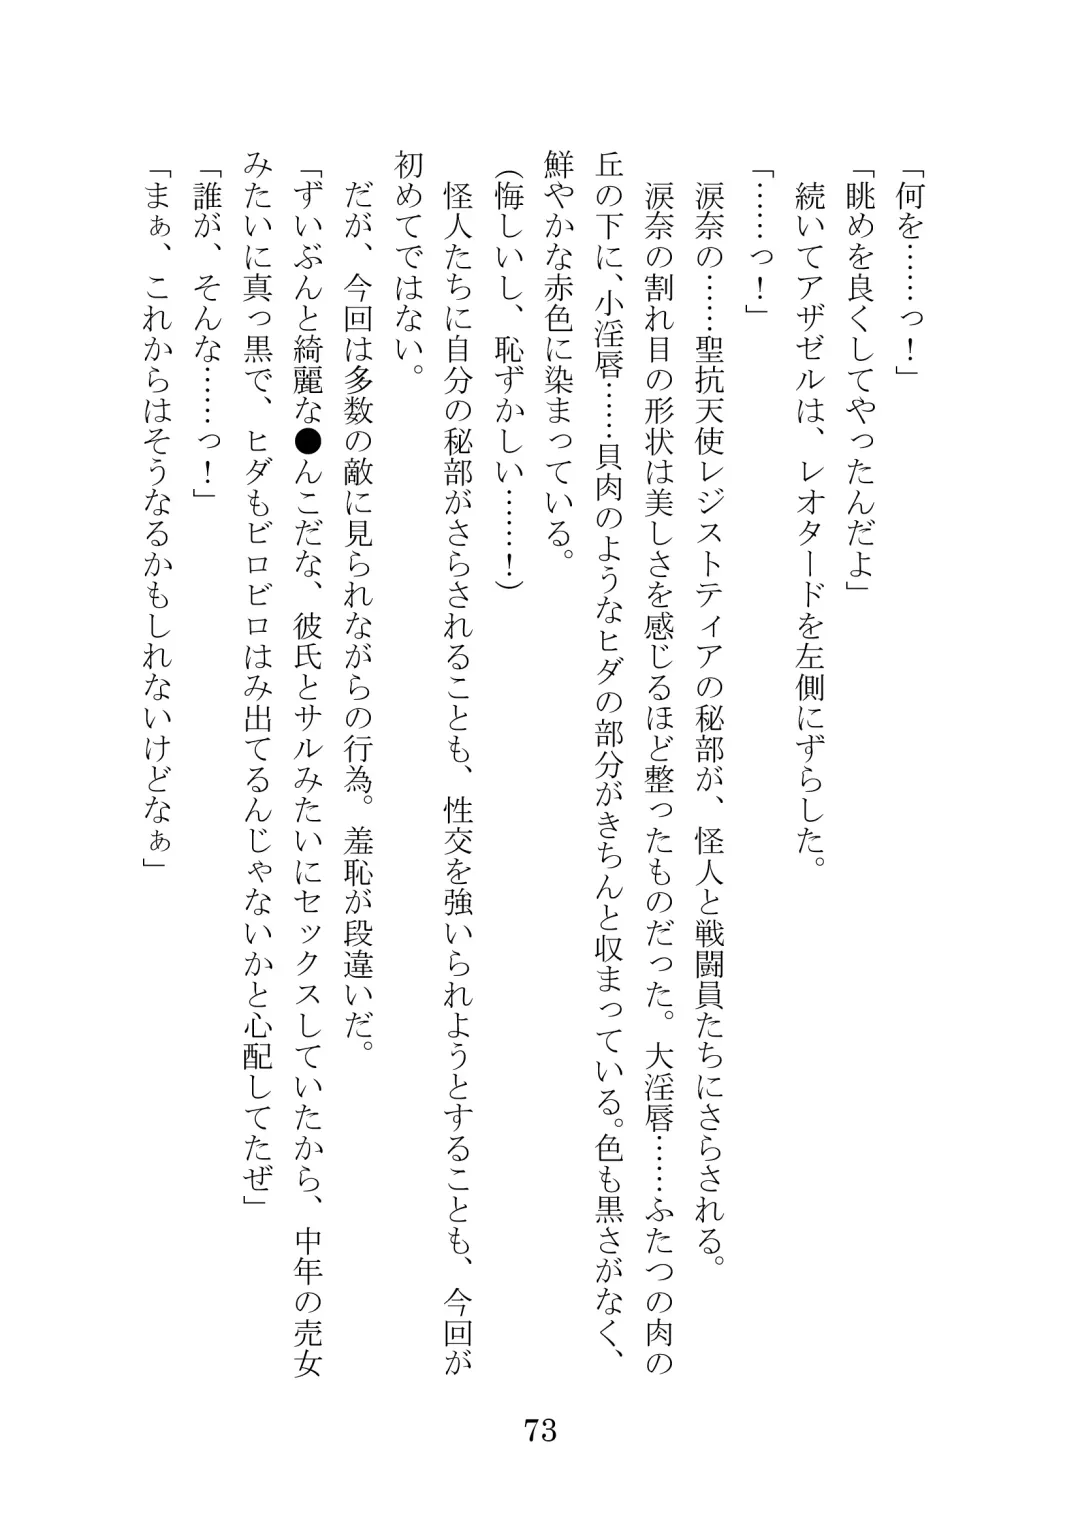 「何を……っ！」
「眺めを良くしてやったんだよ」
　続いてアザゼルは、レオタードを左側にずらした。
「……っ！」
　涙奈の……聖抗天使レジストティアの秘部が、怪人と戦闘員たちにさらされる。
　涙奈の割れ目の形状は美しさを感じるほど整ったものだった。大淫唇……ふたつの肉の
丘の下に、小淫唇……貝肉のようなヒダの部分がきちんと収まっている。色も黒さがなく、
鮮やかな赤色に染まっている。
（悔しいし、恥ずかしい……！）
　怪人たちに自分の秘部がさらされることも、性交を強いられようとすることも、今回が
初めてではない。
　だが、今回は多数の敵に見られながらの行為。羞恥が段違いだ。
「ずいぶんと綺麗な●んこだな、彼氏とサルみたいにセックスしていたから、中年の売女
みたいに真っ黒で、ヒダもビロビロはみ出てるんじゃないかと心配してたぜ」
「誰が、そんな……っ！」
「まぁ、これからはそうなるかもしれないけどなぁ」
73